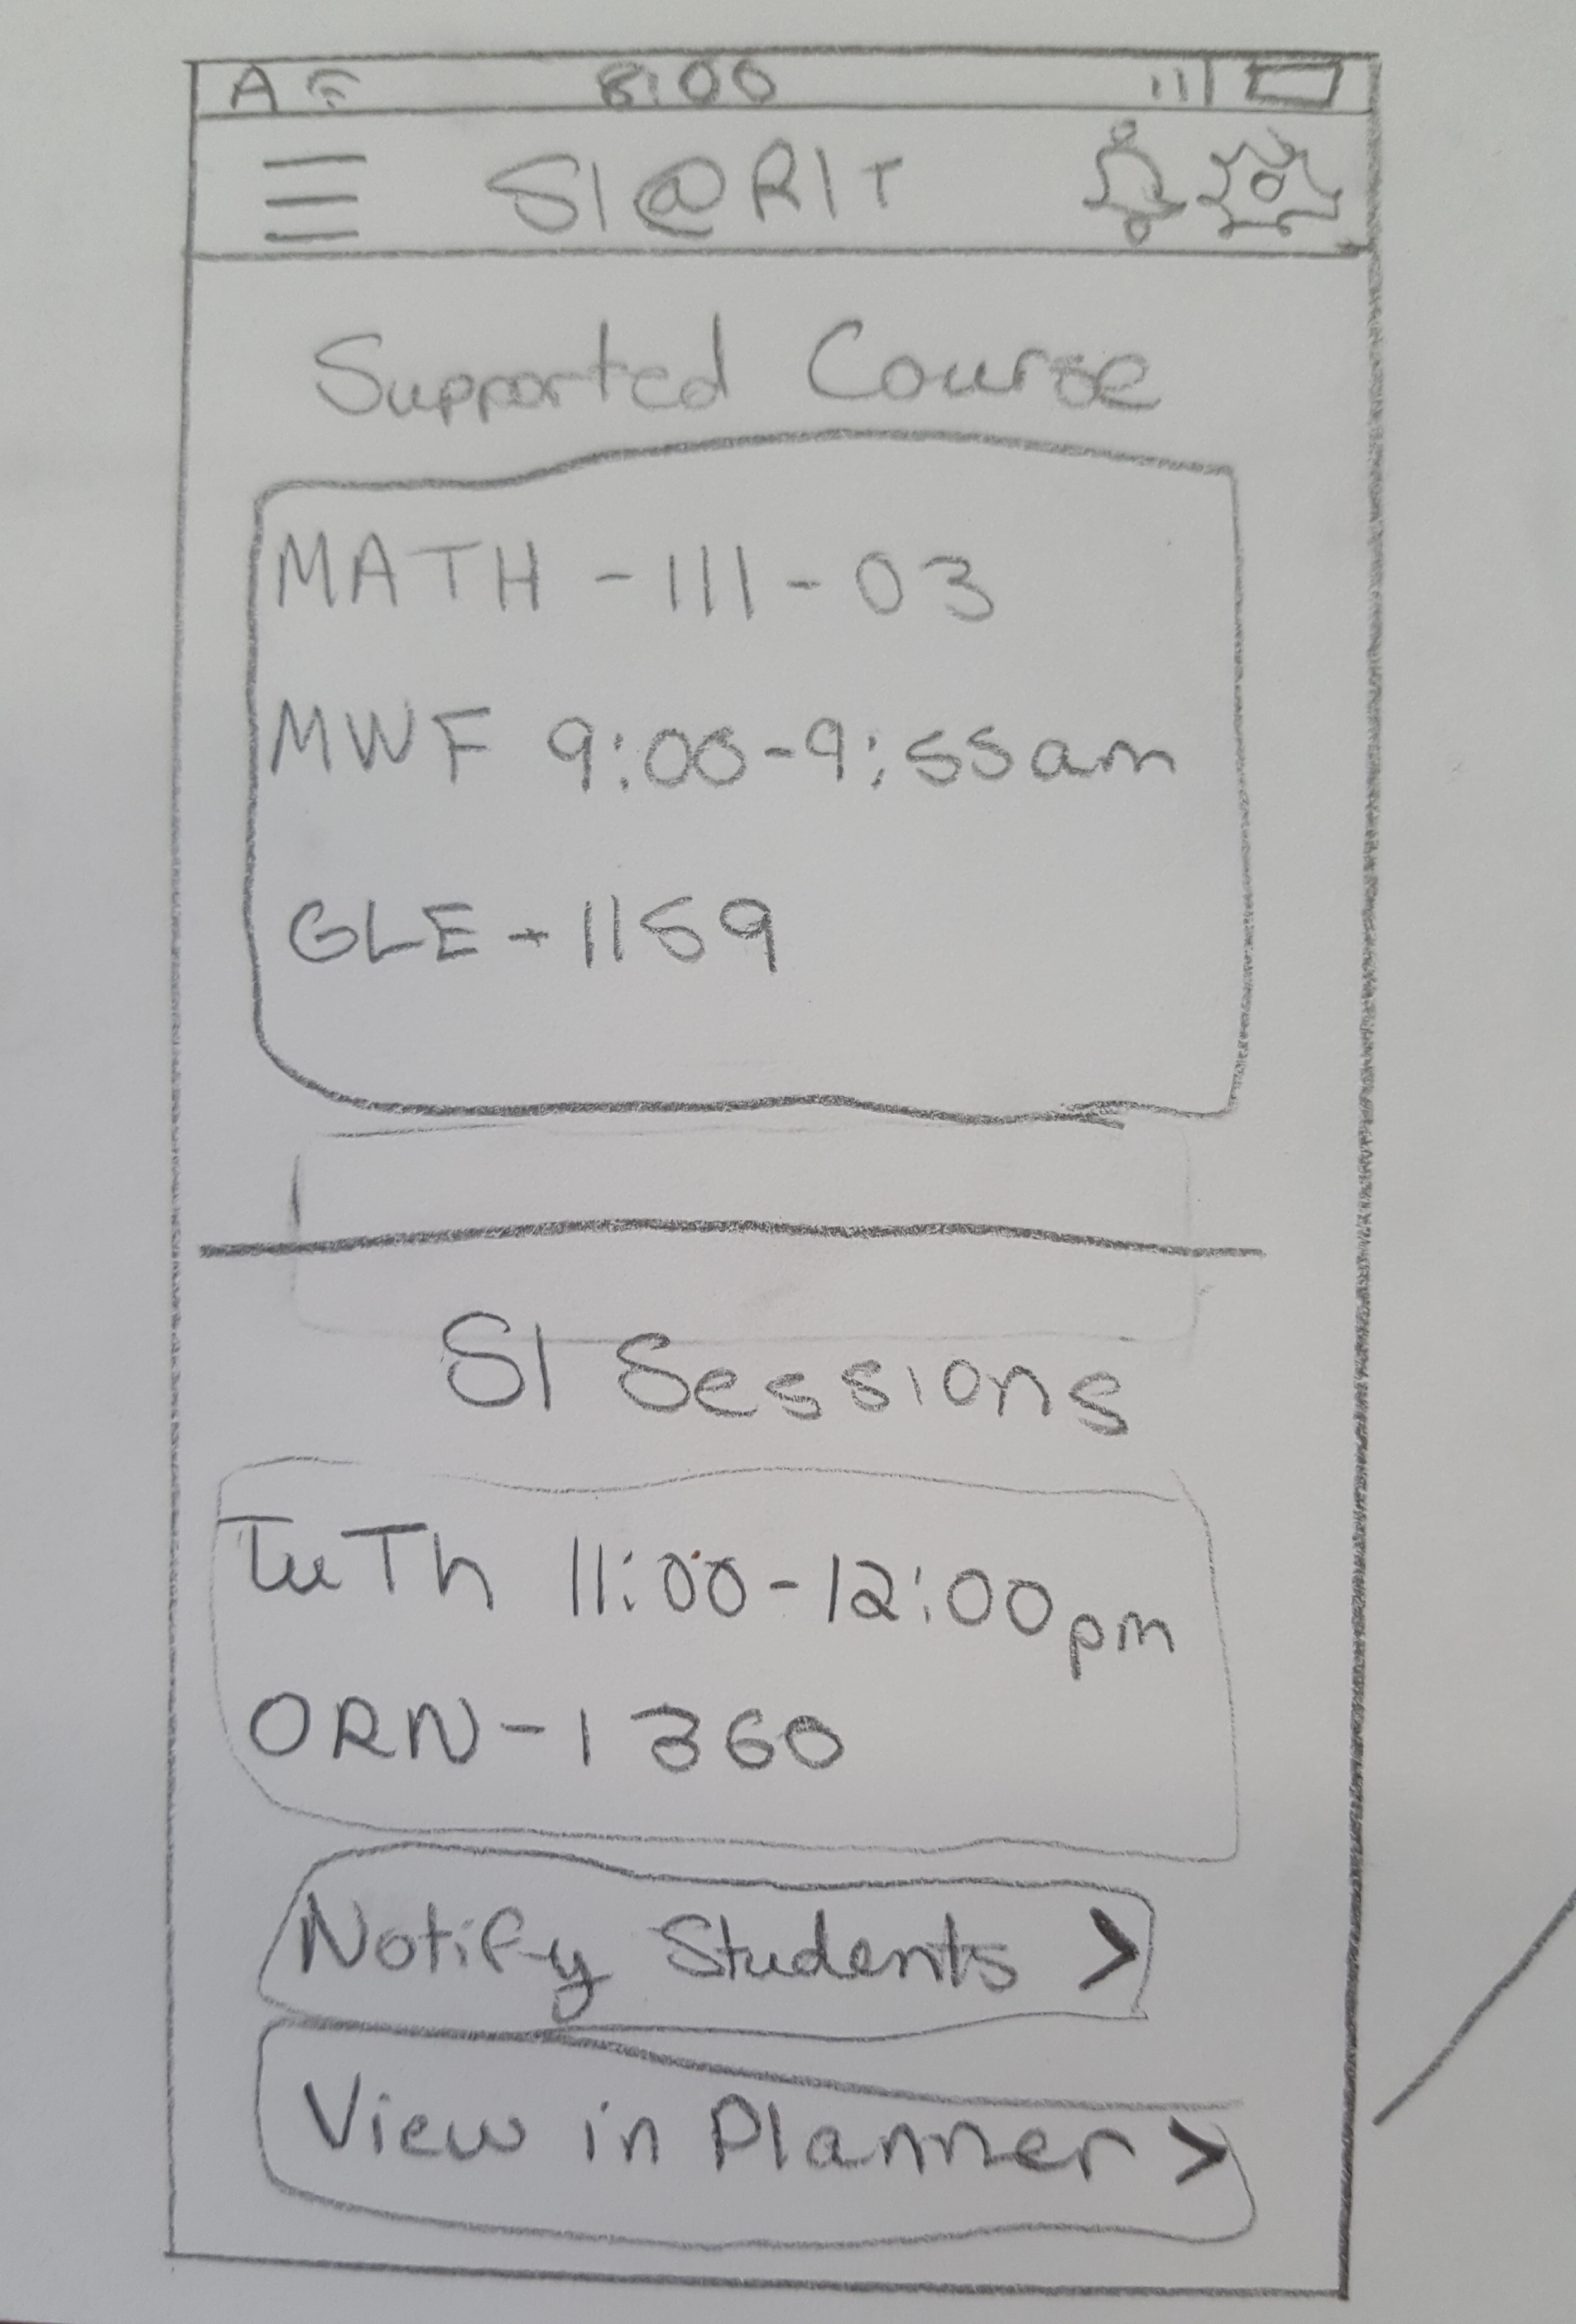 A 8:00
SI@RIT
Supported Course
MATH-111-03
MWF 9:00-9:55am
GLE-1159
SI Sessions
TuTh 11:00-12:00pm
ORN-1360
Notify Students >
View in Planner >